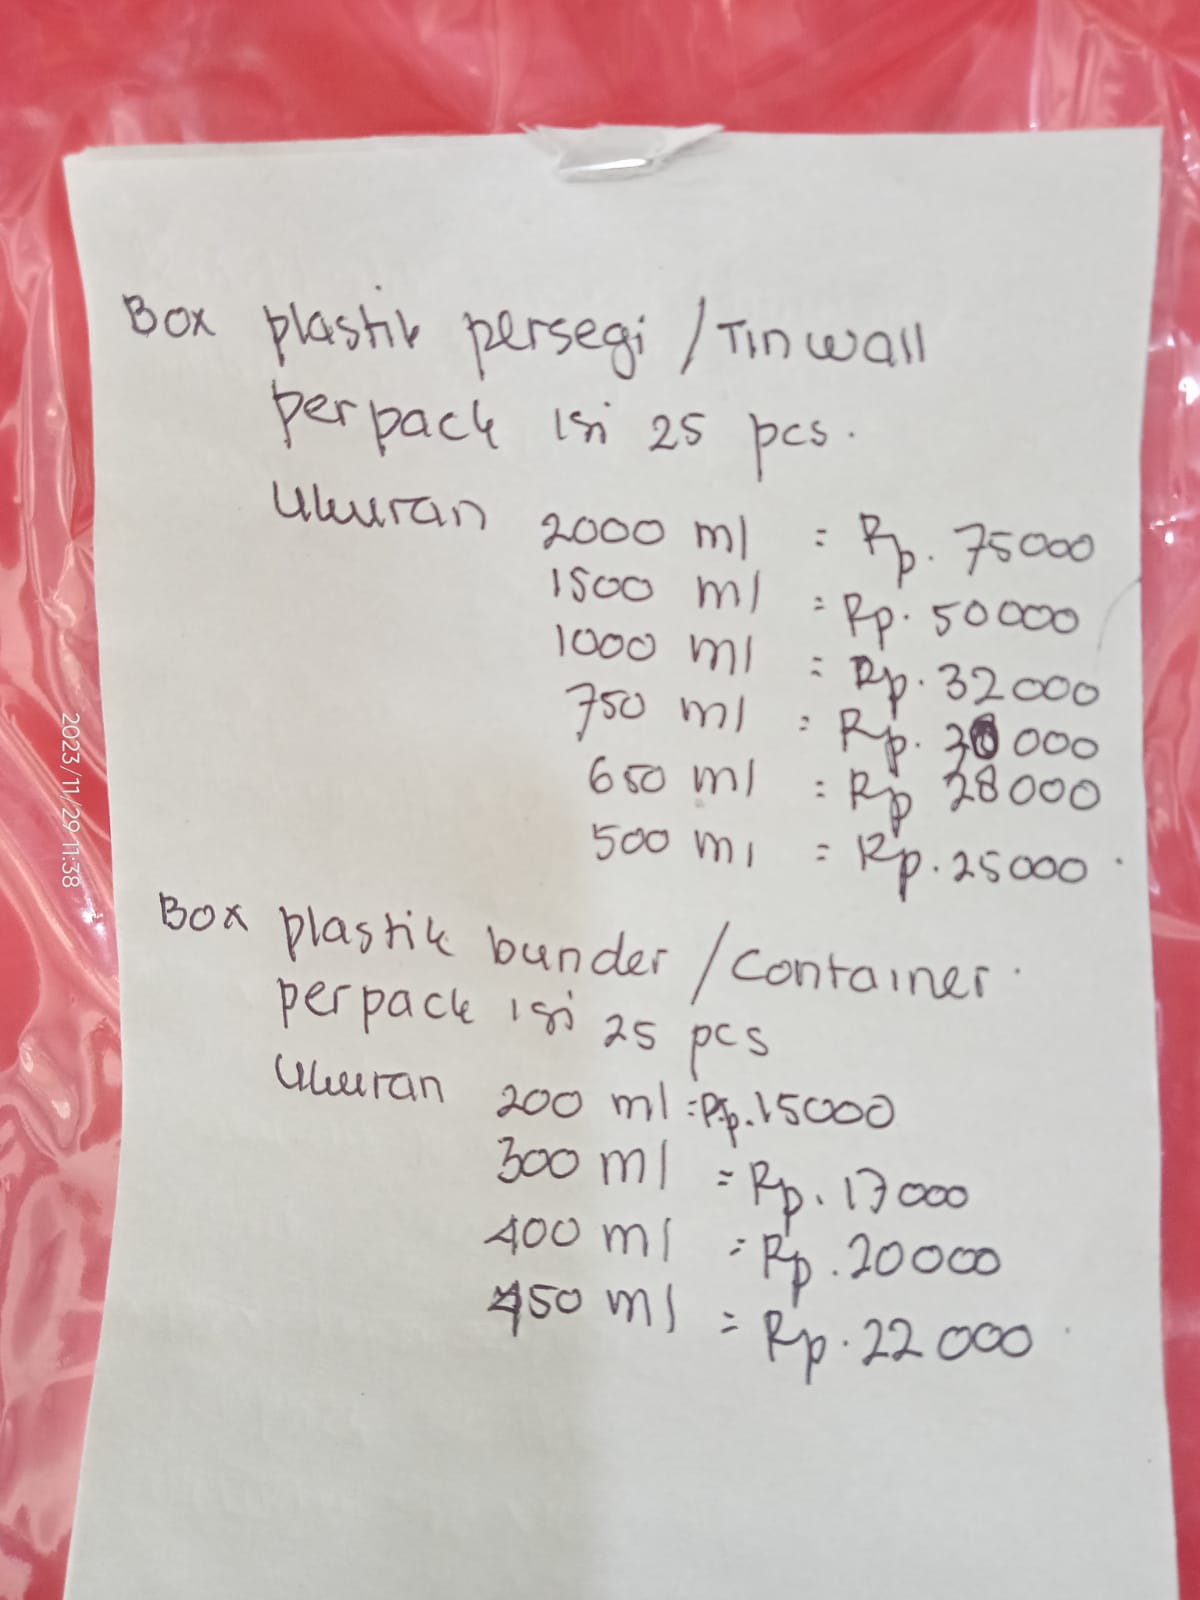 Box plastik persegi / Tinwall
perpack isi 25 pcs.
Ukuran 2000 ml = Rp. 75000
1500 ml = Rp. 50000
1000 ml = Rp. 32000
750 ml = Rp. 30000
650 ml = Rp 28000
500 ml = Rp. 25000
Box plastik bunder / Container
perpack isi 25 pcs
Ukuran 200 ml = Rp. 15000
300 ml = Rp. 17000
400 ml = Rp. 20000
450 ml = Rp. 22000
2023/11/29 11:38